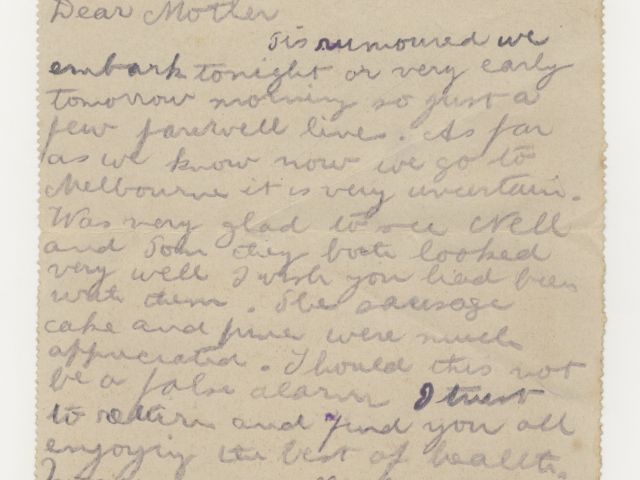 Dear Mother
Tis rumoured we
embark tonight or very early
tomorrow morning so just a
few farewell lines. As far
as we know now we go to
Melbourne it is very uncertain.
Was very glad to see Nell
and Tom they both looked
very well I wish you had been
with them. The sausage
cake and were much
appreciated. Should this not
be a false alarm I trust
to return and find you all
enjoying the best of health.